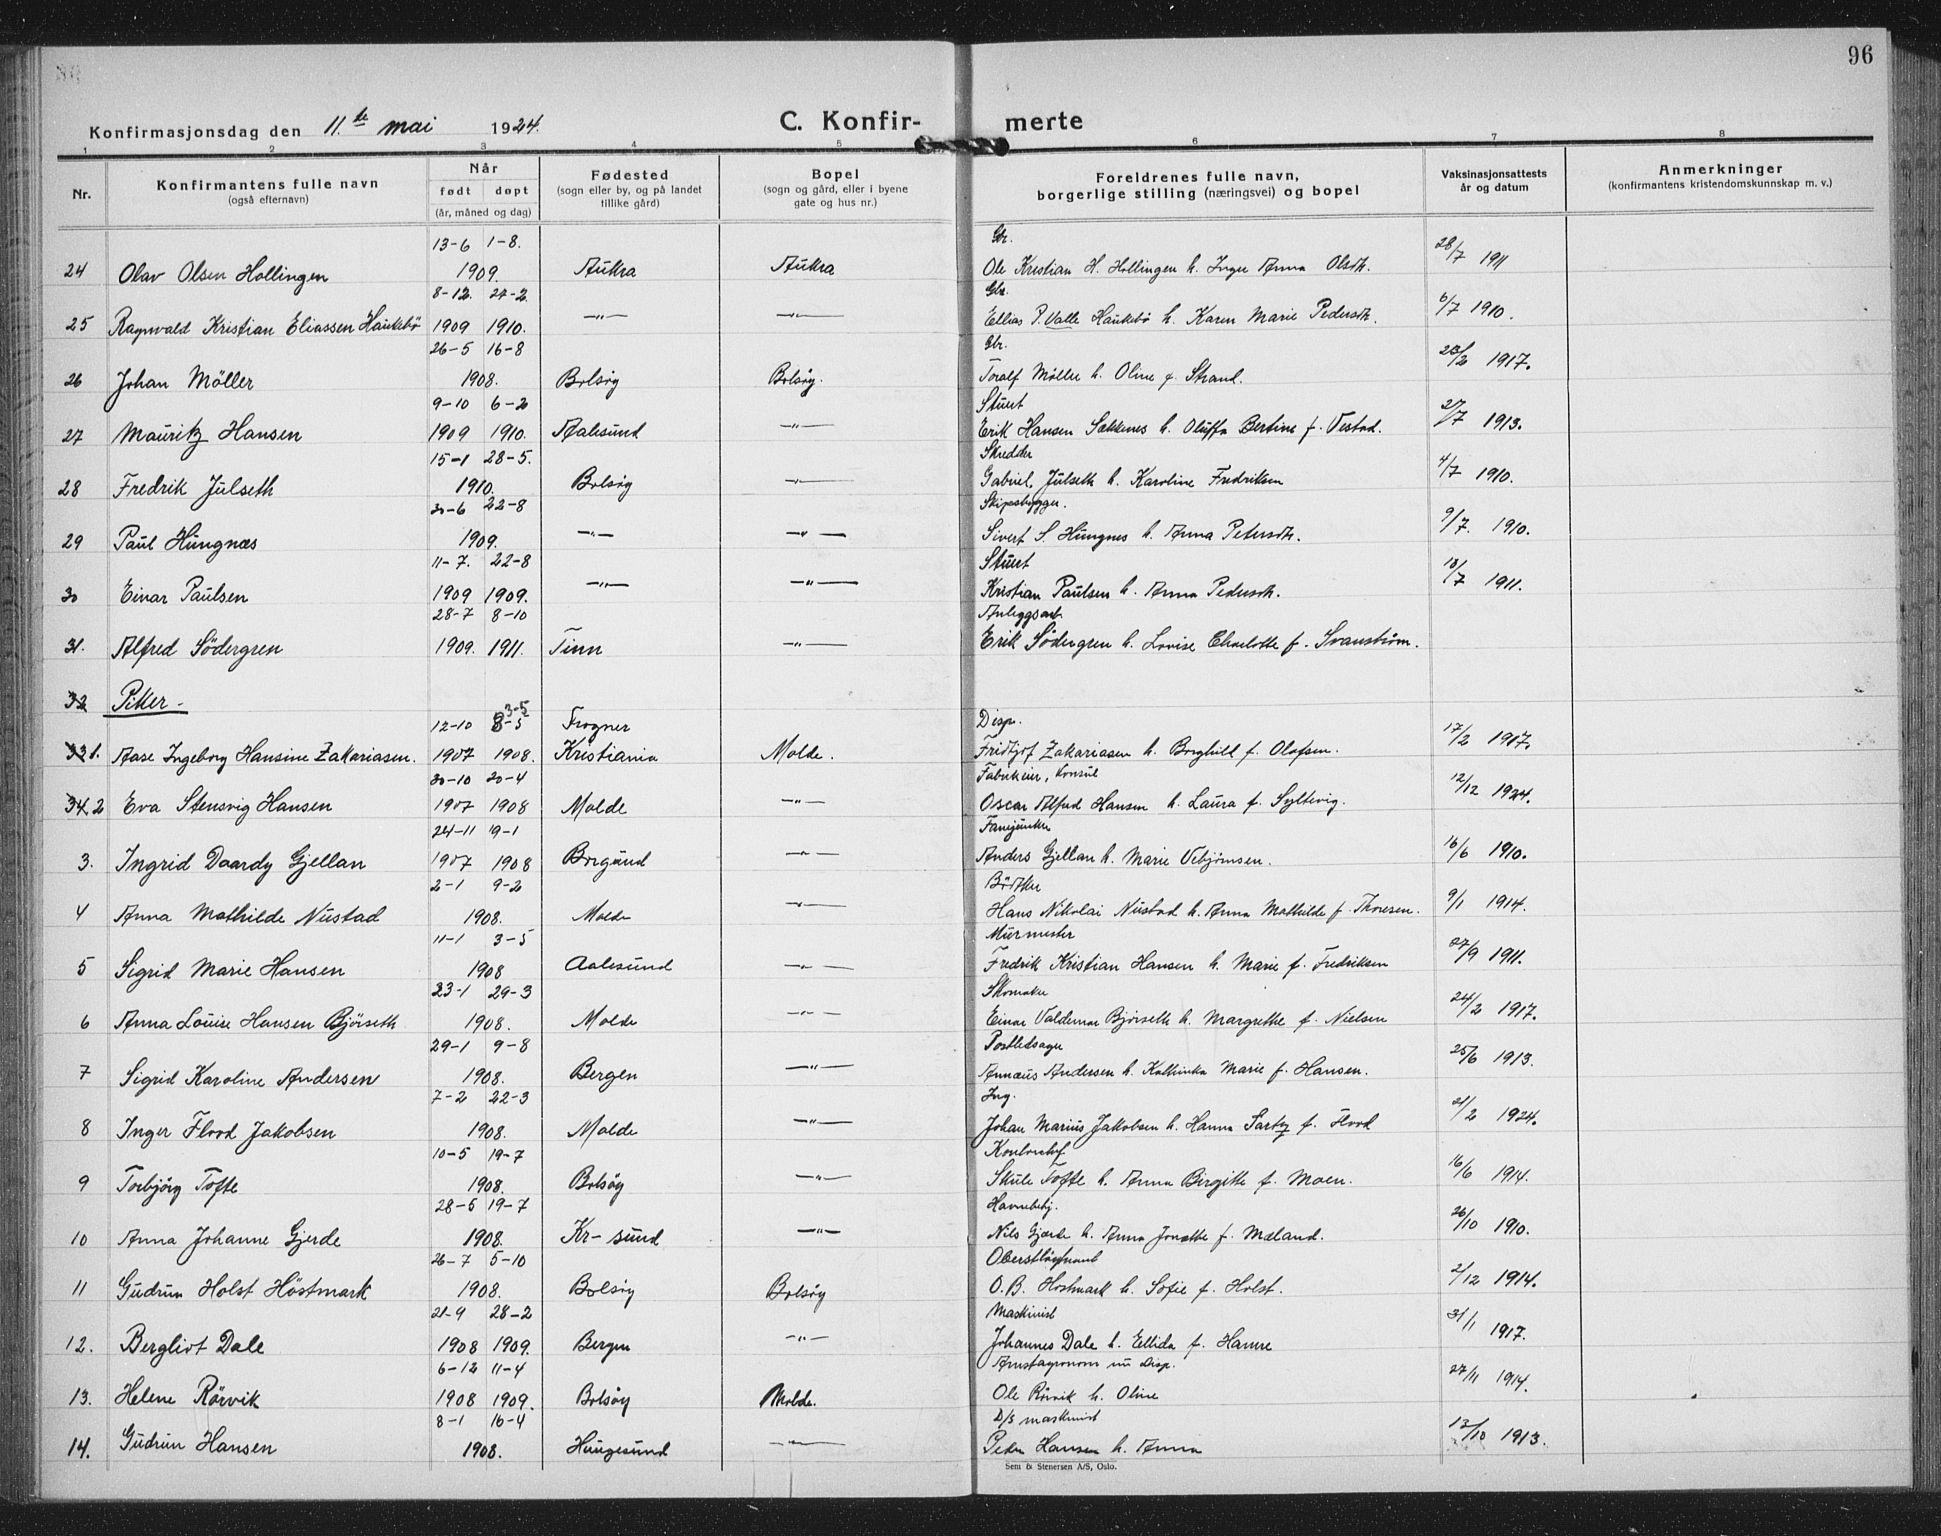 96
Konfirmasjonsdag den 11.te mai 1924.
C. Konfir- merte
1 2 3 4 5 6 7 8
Nr.
Konfirmantens fulle navn
(også efternavn)
Når
født døpt
(år, måned og dag)
Fødested
(sogn eller by, og på landet
tillike gård)
Bopel
(sogn og gård, eller i byene
gate og hus nr.)
Foreldrenes fulle navn,
borgerlige stilling (næringsvei) og bopel
Vaksinasjonsattests
år og datum
Anmerkninger
(konfirmantens kristendomskunnskap m. v.)
13-6 1-8. Gbr.
24 Olav Olsen Hollingen 1909. Aukra Aukra Ole Kristian H. Hollingen h. Inger Anna Olsdtr. 28/7 1911
8-12. 27-2. Gbr.
25 Ragnvald Kristian Eliassen Haukebö 1909 1910. —"— —"— Ellias P. Valle Haukebö h. Karen Marie Pedersdtr. 6/7 1910.
26-5 16-8 Gbr.
26 Johan Möller 1908. Bolsöy Bolsöy. Toralf Möller h. Oline f. Strand. 28/2 1917.
9-10 6-2 Stuert
27 Mauritz Hansen 1909 1910. Aalesund —"— Erik Hansen Sekkenes h. Oluffa Bertine f. Vestad. 27/7 1913.
15-1 28-5. Skredder
28 Fredrik Julseth 1910. Bolsöy —"— Gabriel Julseth h. Karoline Fredriksen 4/7 1910.
30-6 22-8 Skipsbygger.
29 Paul Hungnæs 1909. —"— —"— Sivert S. Hungnes h. Anna Petersdtr. 9/7. 1910.
11-7. 22-8 Stuert
30 Einar Paulsen 1909 1909. —"— —"— Kristian Paulsen h. Anna Pedersdtr. 18/7 1911.
28-7 8-10 Anleggsarb.
31. Alfred Södergren 1909. 1911. Tinn —"— Erik Södergren h. Lovise Charlotte f. Svanström.
32 Piker -
12-10 8-5 3-5 Frogner Disp.
33 1. Aase Ingeborg Hansine Zakariasen. 1907 1908. Kristiania Molde. Fridtjof Zakariasen h. Borghild f. Olafsen. 17/2 1917.
30-10 20-4 Fabrikeier, konsul
34. 2 Eva Stensvig Hansen 1907 1908 Molde —"— Oscar Alfred Hansen h. Laura f. Syltevig. 12/12 1924.
24-11 19-1 Fanejunker
3. Ingrid Daardy Gjellan 1907 1908 Borgund —"— Anders Gjellan h. Marie Vebjörnsen. 16/6 1910.
2-1 9-2 Bödtker
4 Anna Mathilde Nustad 1908. Molde —"— Hans Nikolai Nustad h. Anna Mathilde f. Thoresen. 9/1 1914.
11-1 3-5 Murmester
5 Sigrid Marie Hansen 1908 Aalesund —"— Fredrik Kristian Hansen h. Marie f. Fredriksen 27/9 1911.
23-1 29-3 Skomaker
6 Anna Louise Hansen Björseth 1908. Molde —"— Einar Valdemar Björseth h. Margrethe f. Nielsen 24/2 1917.
29-1 9-8 Postledsager
7 Sigrid Karoline Andersen 1908. Bergen —"— Annæus Andersen h. Kathinka Marie f. Hansen. 25/6 1913.
7-2 22-3 Ing.
8 Inger Flood Jakobsen 1908. Molde —"— Johan Marius Jakobsen h. Hanna Sartz f. Flood 21/2 1924.
10-5 19-7 Kontorchef
9 Torbjörg Tofte 1908. Bolsöy —"— Skule Tofte h. Anna Birgitte f. Moen. 16/6 1914.
28-5 19-7 Havnebetj.
10 Anna Johanne Gjerde 1908. Kr-sund —"— Nils Gjerde h. Anna Jonette f. Mæland. 26/10 1910.
26-7 5-10 Oberstlöytnant
11 Gudrun Holst Höstmark 1908. Bolsöy Bolsöy O.B. Hostmark h. Sofie f. Holst. 2/12 1914.
21-9 28-2 Maskinist
12. Bergliot Dale 1908 1909. Bergen —"— Johannes Dale h. Ellida f. Hamre 31/1 1917.
6-12 11-4 Amtsagronom nu Disp.
13. Helene Rörvik 1908 1909. Bolsöy Molde. Ole Rörvik h. Oline 27/11 1914.
8-1 16-4 D/S maskinist
14. Gudrun Hansen 1908. Haugesund —"— Peder Hansen h. Anna 13/10 1913.
Sem & Stenersen A/S, Oslo.